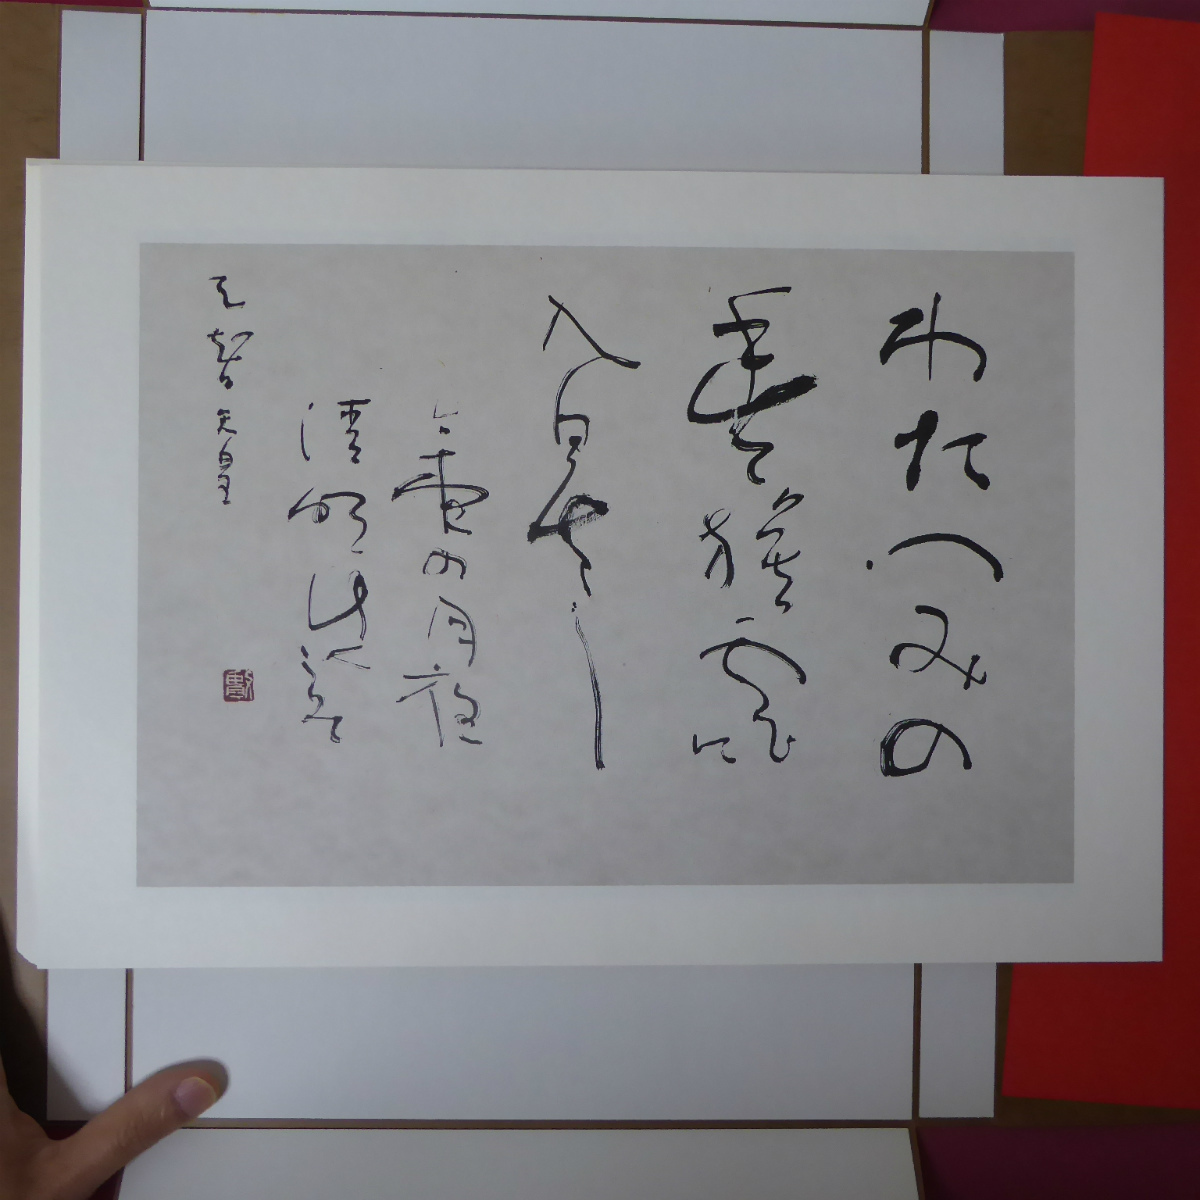 わたつみの
豊旗雲に
入日さし
の月夜
清明けくこそ
天智天皇